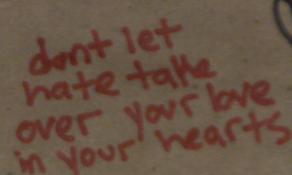 dont let
hate take
over your love
in your hearts